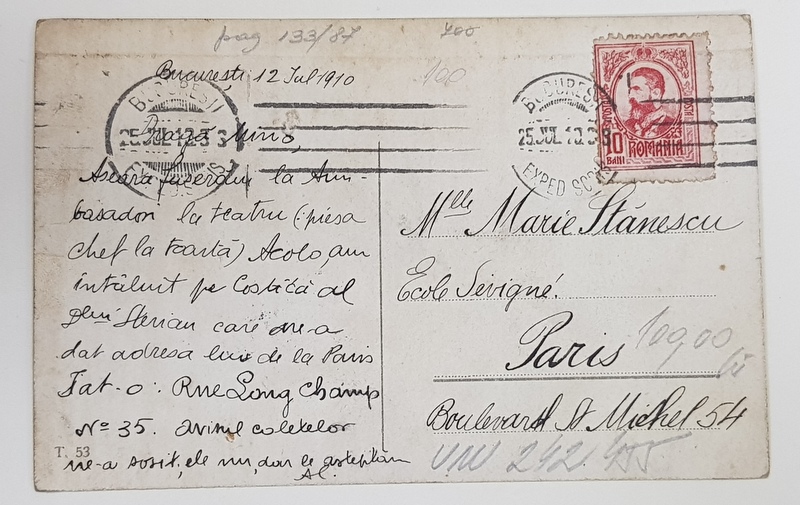 pag 133/87
700
100
București 12 Jul 1910
BUCURESTI
25.JUL 10.3
BUCURESTI
25.JUL 10.3
EXPED SCRIS
10
BANI
ROMANIA
Dragă Mimi,
Aseară fuserăm la Am-
basador la teatru (: piesa
chef la toartă) Acolo am
întâlnit pe Costică al
Dlui Sterian care ne-a
dat adresa lui de la Paris
Iat-o: Rue Long Champ
No 35. avisul coletelor
ne-a sosit, ele nu, dar le asteptăm
T. 53
Mlle Marie Stănescu
Ecole Sévigné.
Paris
Boulevard St Michel 54
100,00
lei
242 455